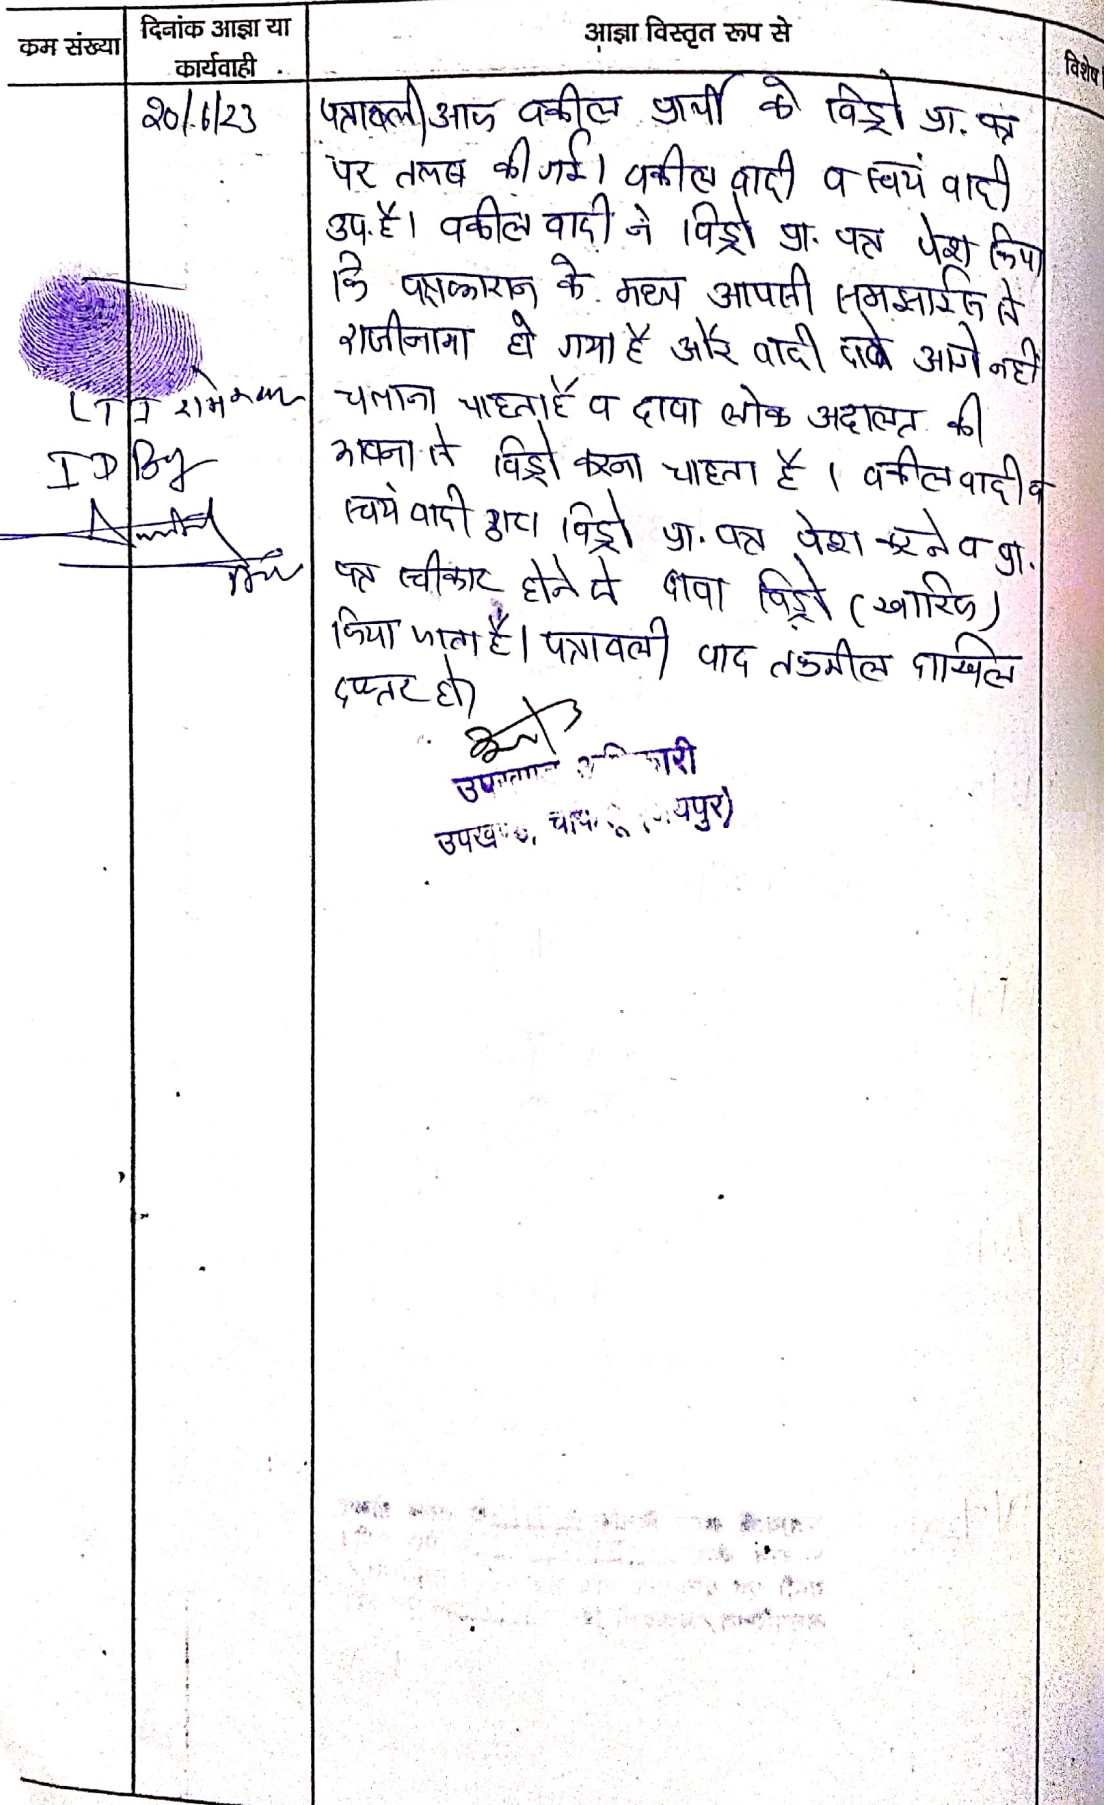 कम संख्या
दिनांक आज्ञा या
कार्यवाही
आज्ञा विस्तृत रूप से
विशेष
20/6/23
पत्रावली आज वकील प्रार्थी के विड्रो प्रा. पत्र
पर तलब की गई। वकील वादी व स्वयं वादी
उप. है। वकील वादी ने विड्रो प्रा. पत्र पेश किया
कि पक्षकारान के मध्य आपसी समझाईश से
राजीनामा हो गया है और वादी दावे आगे नहीं
चलाना चाहता है व दावा लोक अदालत की
भावना से विड्रो करना चाहता है। वकील वादी व
स्वयं वादी द्वारा विड्रो प्रा. पत्र पेश करने व प्रा.
पत्र स्वीकार होने से दावा विड्रो (खारिज)
किया जाता है। पत्रावली बाद तकमील दाखिल
दफ्तर हो।
LTI
ID By
उपखण्ड अधिकारी
उपखण्ड, चाकसू (जयपुर)